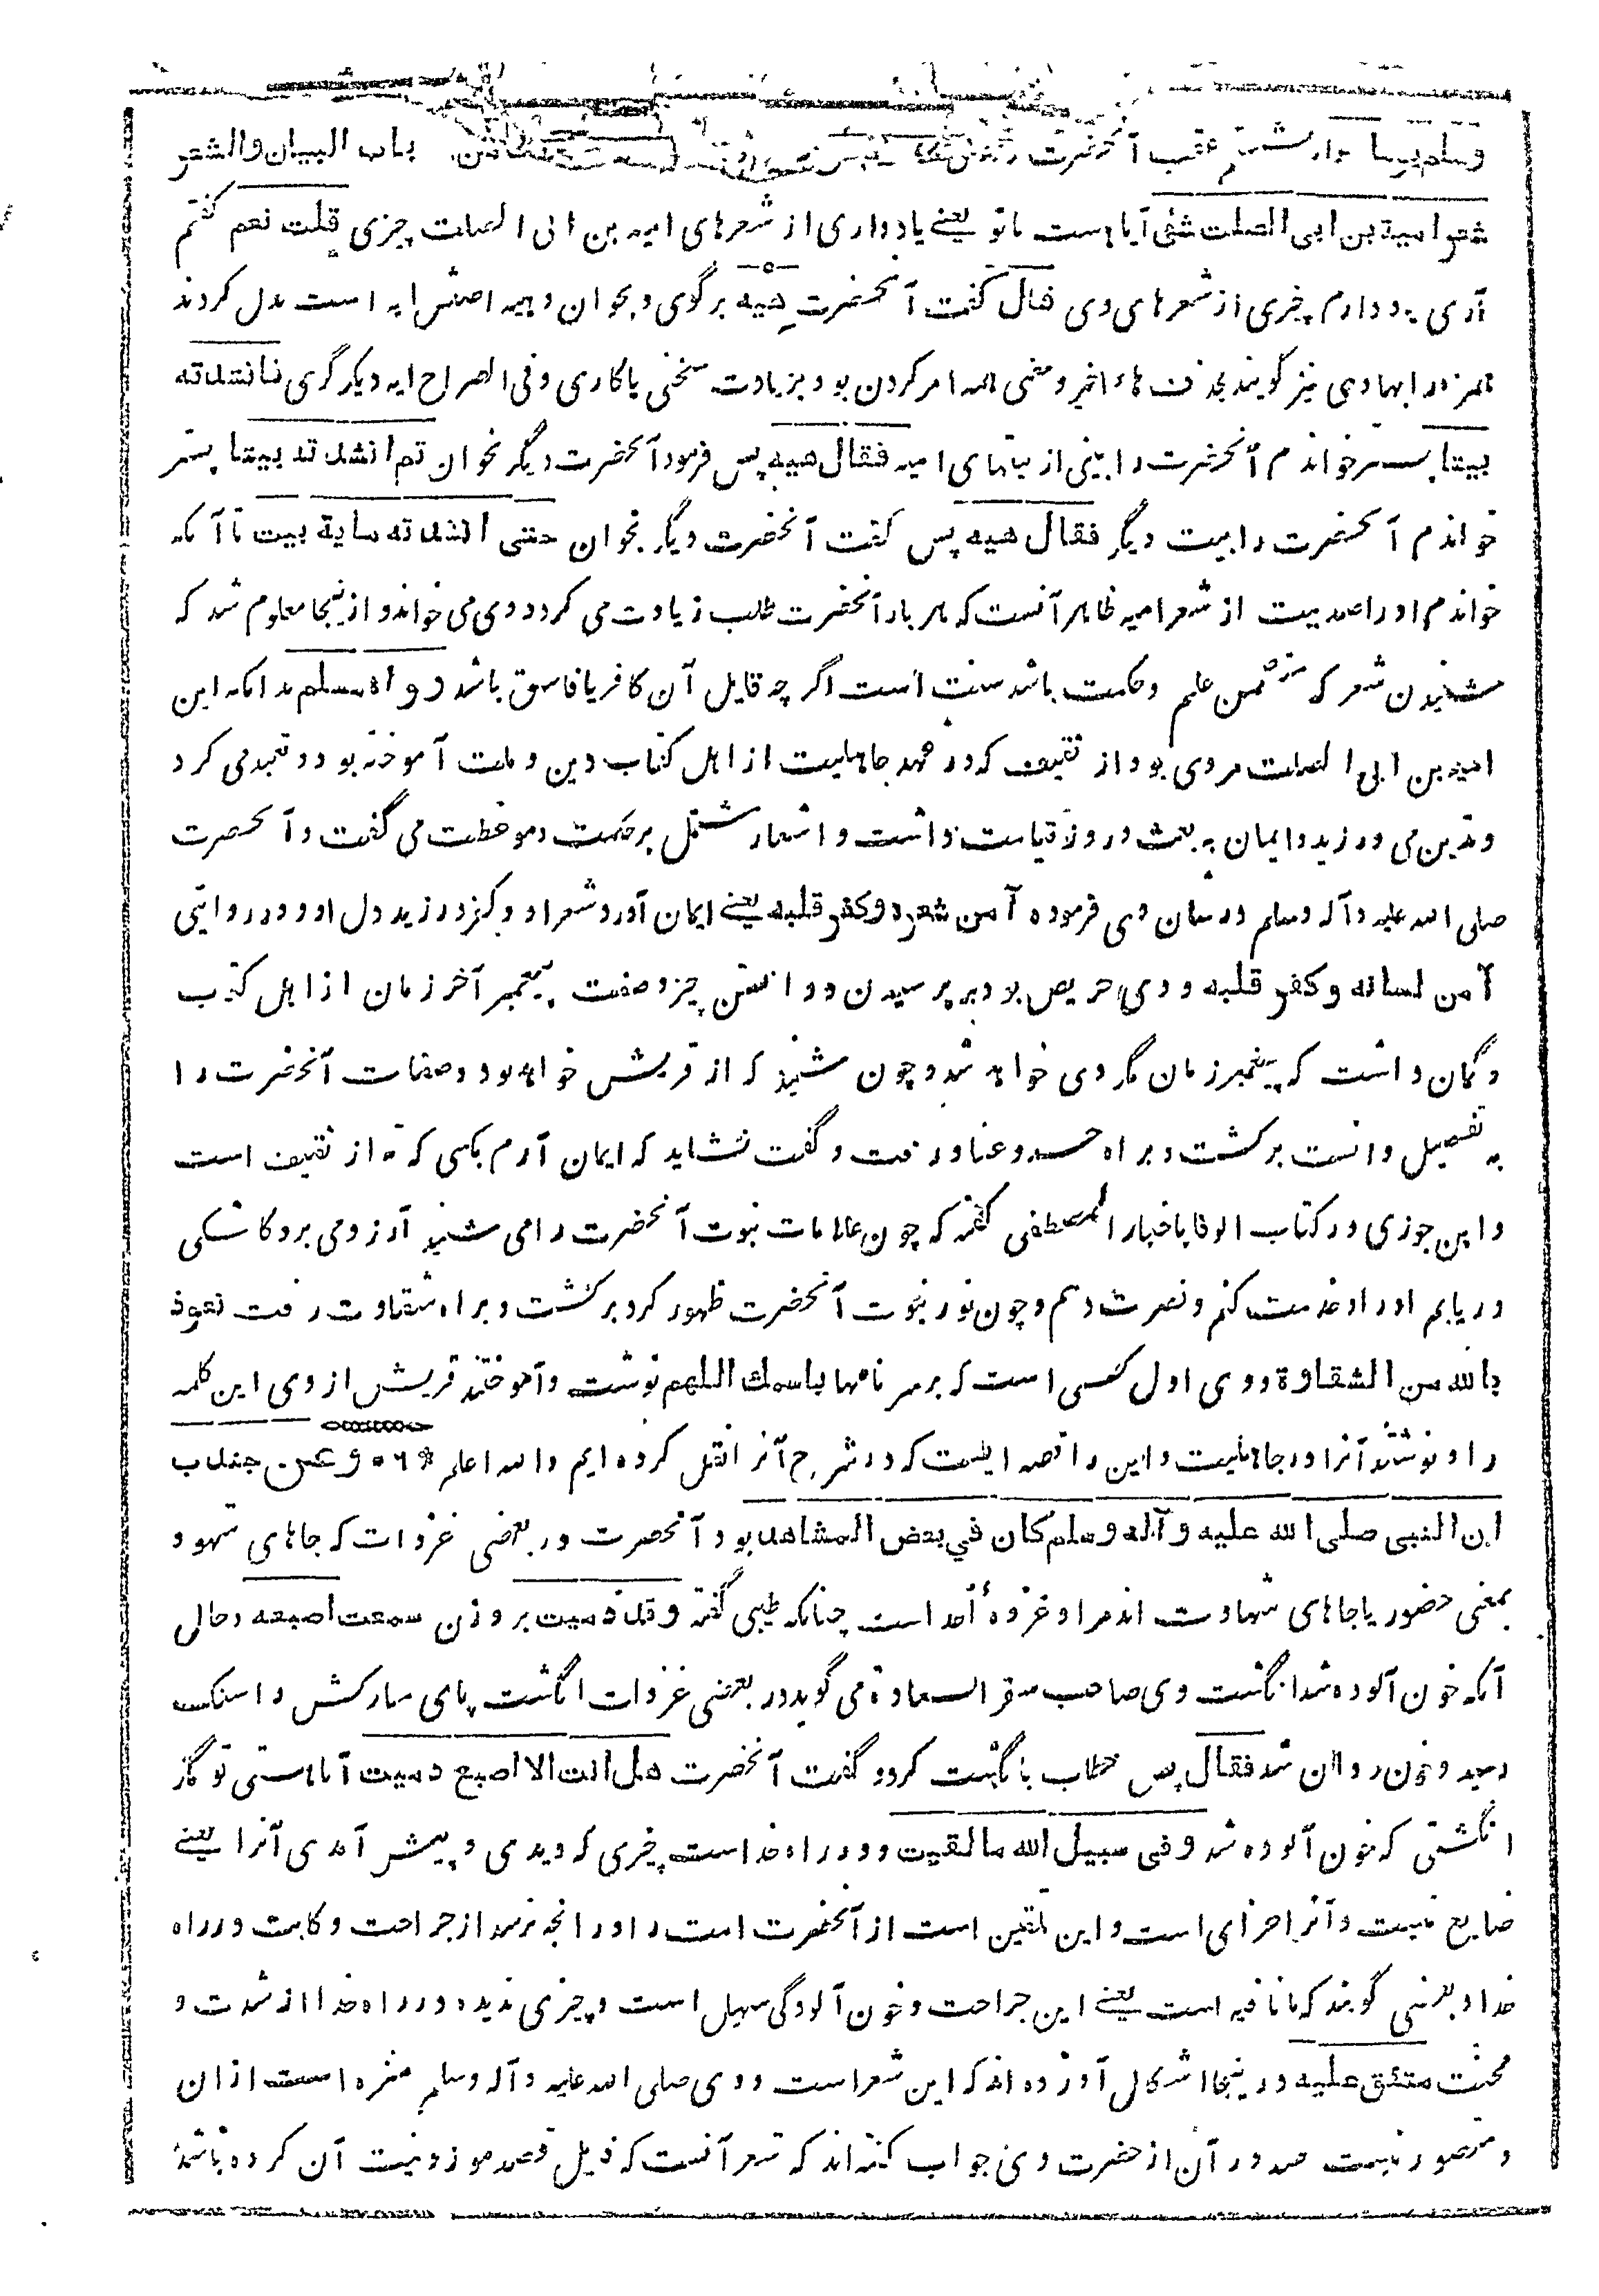 وسلم عقب آنحضرت باب البیان والشعر
شعر امیة بن ابی الصلت شئی آیا هست با تو یعنے یاد داری از شعرهای امیه بن ابی الصلت چیزی قلت نعم گفتم
آری یاد دارم چیزی از شعرهای وی قال گفت آنحضرت هیه برگوی و بخوان و هیه اصلش ایه است بدل کردند
همزه را بها و ی نیز گویند بحذف هاء اخیر و معنی همه امر کردن بود بزیادت سخنی یا کاری و فی الصراح ایه دیگر گوی فانشدته
بیتا پس خواندم آنحضرت را بیتی از بیتهای امیه فقال هیه پس فرمود آنحضرت دیگر بخوان ثم انشدته بیتا پستر
خواندم آنحضرت را بیت دیگر فقال هیه پس گفت آنحضرت دیگر بخوان حتی انشدته مایة بیت تا آنکه
خواندم او را صد بیت از شعر امیه ظاهر آنست که هر بار آنحضرت طلب زیادت می کرد و وی می خواند و ازینجا معلوم شد که
شنیدن شعر که متضمن علم و حکمت باشد سنت است اگر چه قایل آن کافر یا فاسق باشد رواه مسلم بدانکه این
امیه بن ابی الصلت مردی بود از ثقیف که در عهد جاهلیت از اهل کتاب دین و ملت آموخته بود و تعبد می کرد
و تدین می ورزید و ایمان به بعث و روز قیامت داشت و اشعار مشتمل بر حکمت و موعظت می گفت و آنحضرت
صلی الله علیه وآله وسلم در شان وی فرموده آمن شعره وکفر قلبه یعنے ایمان آورد شعر او و کفر ورزید دل او و در روایتی
آمن لسانه وکفر قلبه و وی حریص بود بر پرسیدن و دانستن خبر و صفت پیغمبر آخر زمان از اهل کتاب
و گمان داشت که پیغمبر زمان مگر وی خواهد شد و چون شنید که از قریش خواهد بود و صفات آنحضرت را
به تفصیل دانست برگشت و براه حسد و عناد رفت و گفت نشاید که ایمان آرم بکسی که نه از ثقیف است
و ابن جوزی در کتاب الوفا باخبار المصطفی گفته که چون علامات نبوت آنحضرت را می شنید آرزو می برد کاشکی
دریابم او را و خدمت کنم و نصرت دهم و چون نور نبوت آنحضرت ظهور کرد برگشت و براه شقاوت رفت نعوذ
بالله من الشقاوة و وی اول کسی است که بر سر نامها باسمك اللهم نوشت و آموختند قریش از وی این کلمه
را و نوشتند آنرا در جاهلیت و این را قصه ایست که در شرح آنرا نقل کرده ایم والله اعلم * ٦ ٠ وعن جندب
ان النبی صلی الله علیه وآله وسلم کان في بعض المشاهد بود آنحضرت در بعضی غزوات که جاهای شهود
بمعنی حضور یا جاهای شهادت اند مراد غزوهٔ أحد است چنانکه طیبی گفته وقد دمیت بر وزن سمعت اصبعه و حالی
آنکه خون آلوده شد انگشت وی صاحب سفر السعادة می گوید در بعضی غزوات انگشت پای مبارکش را سنگ
رسید و خون روان شد فقال پس خطاب بانگشت کرد و گفت آنحضرت هل انت الا اصبع دمیت آیا هستی تو مگر
انگشتی که خون آلوده شد وفی سبیل الله ما لقیت و در راه خداست چیزی که دیدی و پیش آمدی آنرا یعنے
ضایع نیست و آنرا جزای است و این تلقین است از آنحضرت امت را در آنچه برسد از جراحت و کلفت در راه
خدا و بعضی گویند که ما نافیه است یعنے این جراحت و خون آلودگی سهل است و چیزی ندیده در راه خدا از شدت و
محنت متفق علیه و در ینجا اشکال آورده اند که این شعر است و وی صلی الله علیه وآله وسلم منزه است ازان
و متصور نیست صدور آن از حضرت وی جواب گفته اند که شعر آنست که قبل قصد موزونیت آن کرده باشد